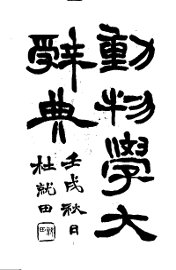 動物學大
辭典
壬戌秋日
杜就田